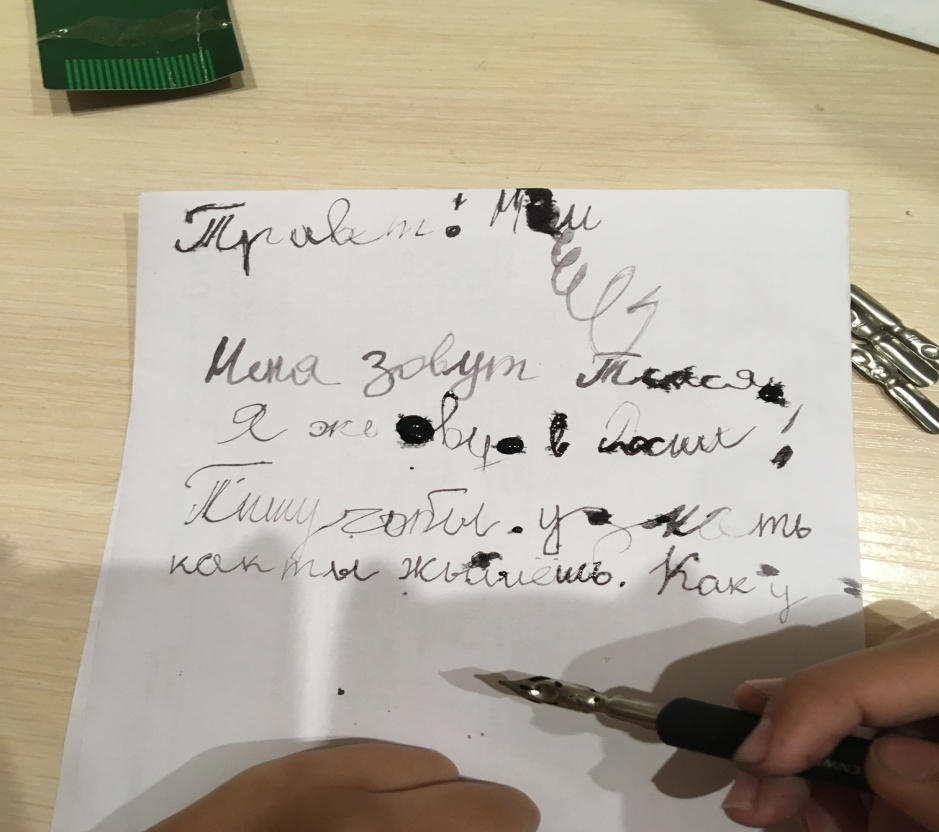 Привет!
Меня зовут Тася
Я живу в России!
Пишу чтобы узнать
как ты живёшь. Как у